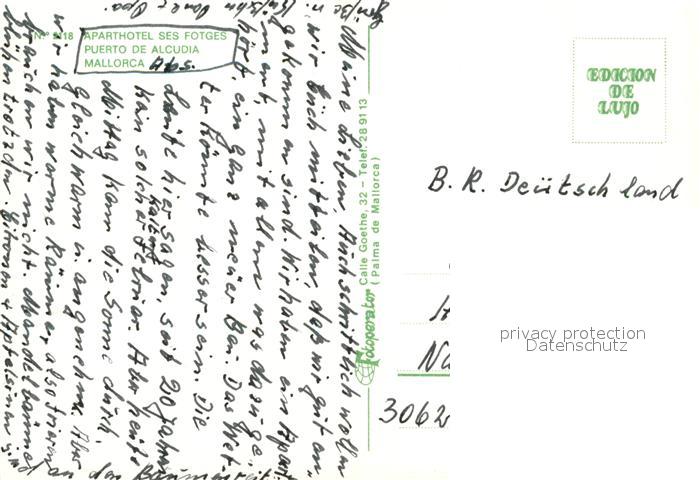 Nº 9118 APARTHOTEL SES FOTGES
PUERTO DE ALCUDIA
MALLORCA
Meine Lieben, Nachschriftlich wolln
wir Euch mitteilen, daß wir gut an
gekommen sind. Wir haben ein Apart
ment, mit allem was dazu ge-
hört, ein ganz neuer Bau. Das Wet-
ter könnte besser sein. Die
Leute hier sagen, seit 20 Jahren
kein solcher kalter Februar. Aber heute
Mittag kam die Sonne durch,
gleich warm u. angenehm. Aber
wir haben warme Räume, also frieren
brauchen wir nicht. Mandelbäume
blühen trotzdem. Zitronen + Apfelsinen sind
an den Bäumen reif.
Grüße
Oma + Opa.
Fotoperator Calle Goethe, 32 – Telef. 28 91 13
(Palma de Mallorca)
EDICION
DE
LUJO
B. R. Deutschland
3062
privacy protection
Datenschutz